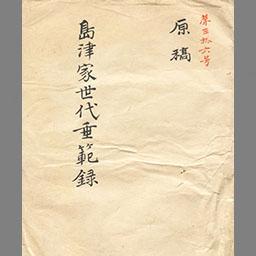 第三拾六号
原稿
島津家世代垂範録